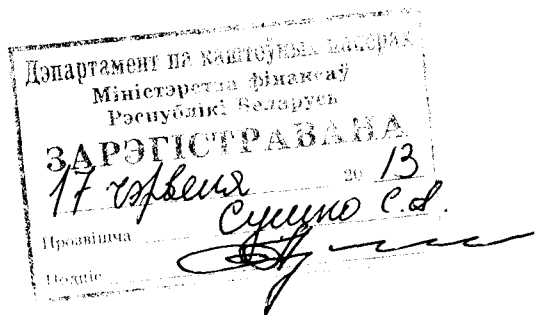 Дэпартамент па каштоўных паперах
Міністэрства фінансаў
Рэспублікі Беларусь
ЗАРЭГІСТРАВАНА
17 чэрвеня 2013
Прозвішча Сушко С.А.
Подпіс